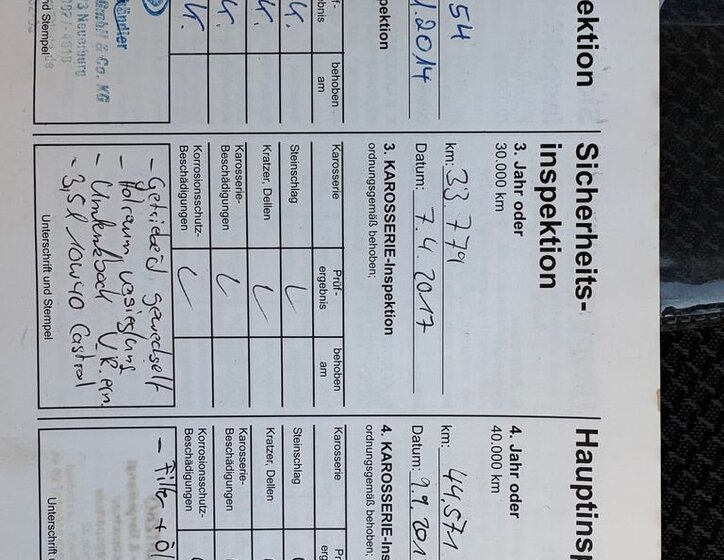 ektion
54
1.2014
pektion
f-
ebnis
behoben
am
K.
K.
K.
K.
ändler
GmbH & Co. KG
3 Neuerburg
nd Stempel
Sicherheits-
inspektion
3. Jahr oder
30.000 km
km: 33.779
Datum: 7.4.2017
3. KAROSSERIE-Inspektion
ordnungsgemäß behoben;
Karosserie
Prüf-
ergebnis
behoben
am
Steinschlag
Kratzer, Dellen
Karosserie-
Beschädigungen
Korrosionsschutz-
Beschädigungen
- gewechselt
- Hohlraumversieglung
-
- 3,5l 10W40 Castrol
Unterschrift und Stempel
Hauptins
4. Jahr oder
40.000 km
km: 44.571
Datum: 9.9.201
4. KAROSSERIE-Ins
ordnungsgemäß behoben;
Karosserie
Pr
erg
Steinschlag
Kratzer, Dellen
Karosserie-
Beschädigungen
Korrosionsschutz-
Beschädigungen
- Filter + Öl
Unterschr